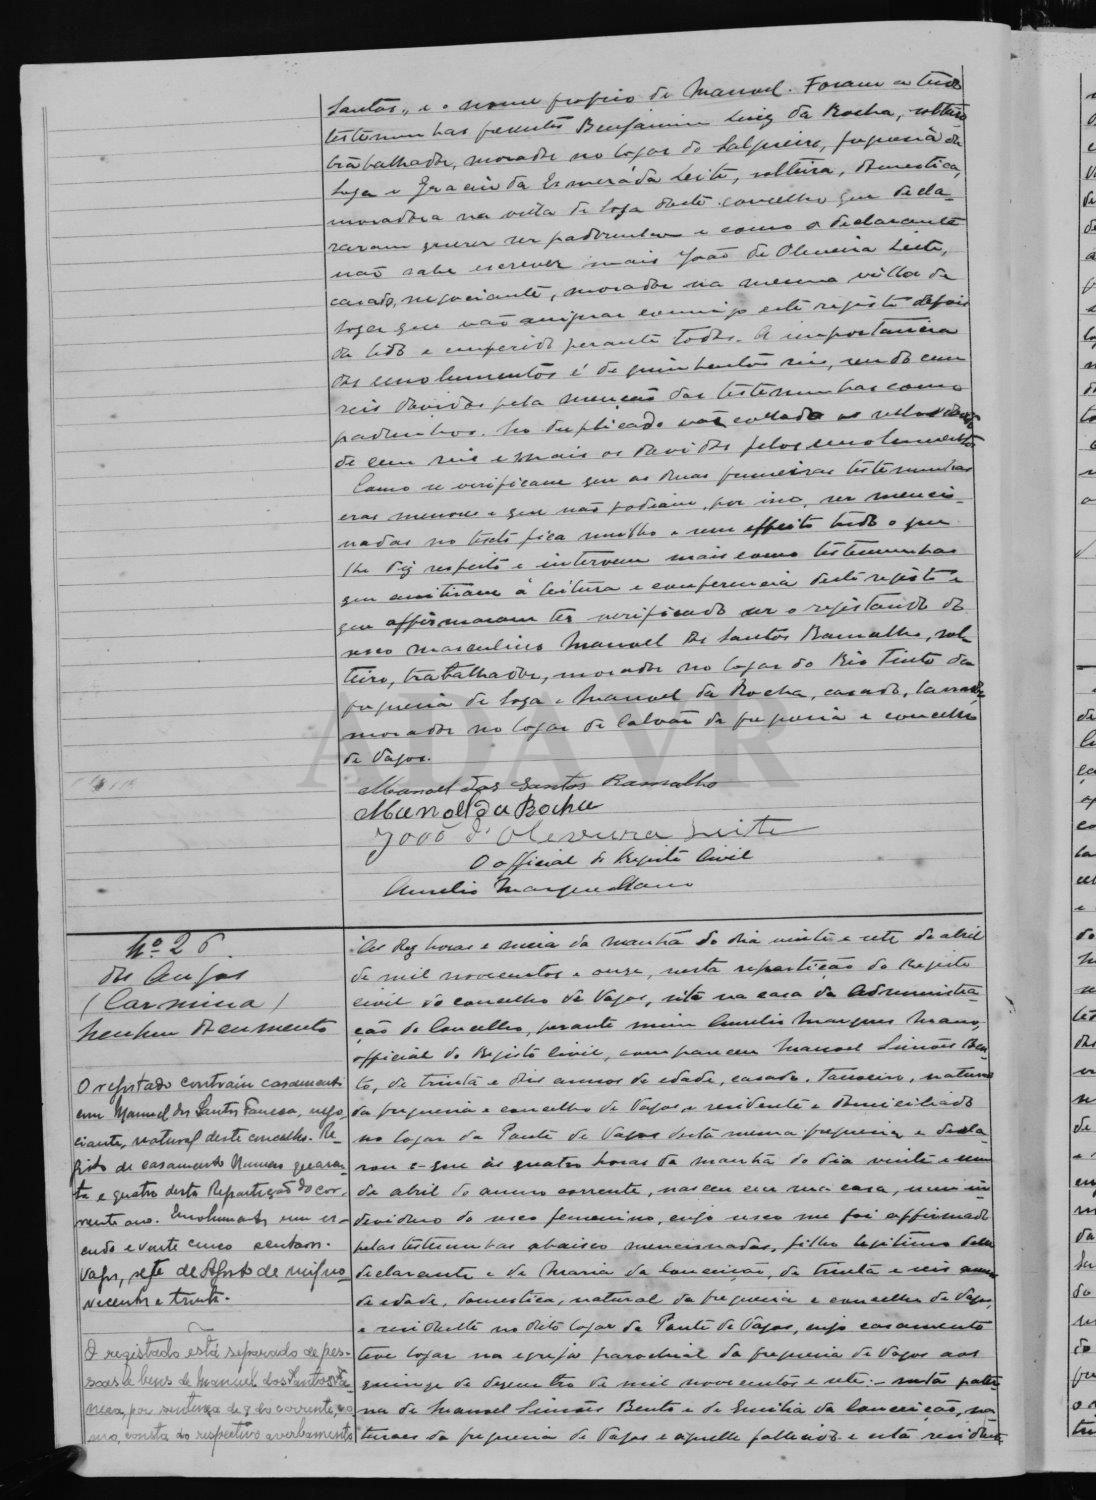 Santos, e o nome proprio de Manoel. Foram a tudo
testemunhas presentes Benjamim Luiz da Rocha, solteiro
trabalhador, morador no logar do Salgueiro, freguesia de
Soza e Gracinda Esmeráda Leite, solteira, domestica,
moradora na villa de Soza deste concelho que decla-
raram querer ser padrinhos e como o declarante
não sabe escrever mais João de Oliveira Leite,
casado, negociante, morador na mesma villa de
Soza que vão assignar commigo este registo depois
de lido e conferido perante todos. A importancia
dos emolumentos é de quinhentos reis, sendo cem
reis devidos pela menção das testemunhas como
padrinhos. No duplicado vão collados os sellos
de cem reis e mais os devidos pelos emolumentos
Como se verificasse que as duas primeiras testemunhas
eram menores e que não podiam, por isso, ser mencio-
nadas no texto fica nullo e sem effeito tudo o que
lhe diz respeito e intervem mais como testemunhas
que assistiram á leitura e conferencia deste registo e
que affirmaram ter verificado ser o registando do
sexo masculino Manoel dos Santos Ramalho, sol-
teiro, trabalhador, morador no logar do Rio Tinto da
freguesia de Soza e Manoel da Rocha, casado, lavrador,
morador no logar de Calvão da freguesia e concelho
de Vagos.
Manoel dos Santos Ramalho
Manoel da Rocha
João d'Oliveira Leite
O official do Registo Civil
Aurelio Marques Mano
ADAVR
Nº 26
dos Anjos
(Carmina)
Nenhum documento
O registado contraiu casamento
com Manuel dos Santos Faneca, nego-
ciante, natural deste concelho. Re-
gisto de casamento Numero quaren-
ta e quatro desta Repartição do cor-
rente ano. Emolumentos um es-
cudo e vinte cinco centavos.
Vagos, sete de Agosto de mil no-
vecentos e trinta.
O registado está separado de pes-
soas e bens de Manuel dos Santos Fa-
neca, por sentença de 9 do corrente
ano, consta do respectivo averbamento
As dez horas e meia da manhã do dia vinte e sete de abril
de mil novecentos e onze, nesta repartição do Registo
civil do concelho de Vagos, sita na casa da Administra-
ção do Concelho, perante mim Aurelio Marques Mano,
official do Registo Civil, compareceu Manoel Simões Ben-
to, de trinta e dois annos de edade, casado, tanoeiro, natural
da freguesia e concelho de Vagos e residente e domiciliado
no logar da Ponte de Vagos desta mesma freguesia e decla-
rou-se que ás quatro horas da manhã do dia vinte e um
de abril do anno corrente, nasceu em sua casa, um in-
dividuo do sexo femenino, cujo sexo me foi affirmado
pelas testemunhas abaixo mencionadas, filho legitimo delle
declarante e de Maria da Conceição, de trinta e seis annos
de edade, domestica, natural da freguesia e concelho de Vagos,
e residente no dito logar da Ponte de Vagos, cujo casamento
teve logar na egreja parochial da freguesia de Vagos aos
quinze de dezembro de mil novecentos e sete: – neta pater-
na de Manoel Simões Bento e de Emilia da Conceição, na-
turaes da freguesia de Vagos e aquelle fallecido e esta residente